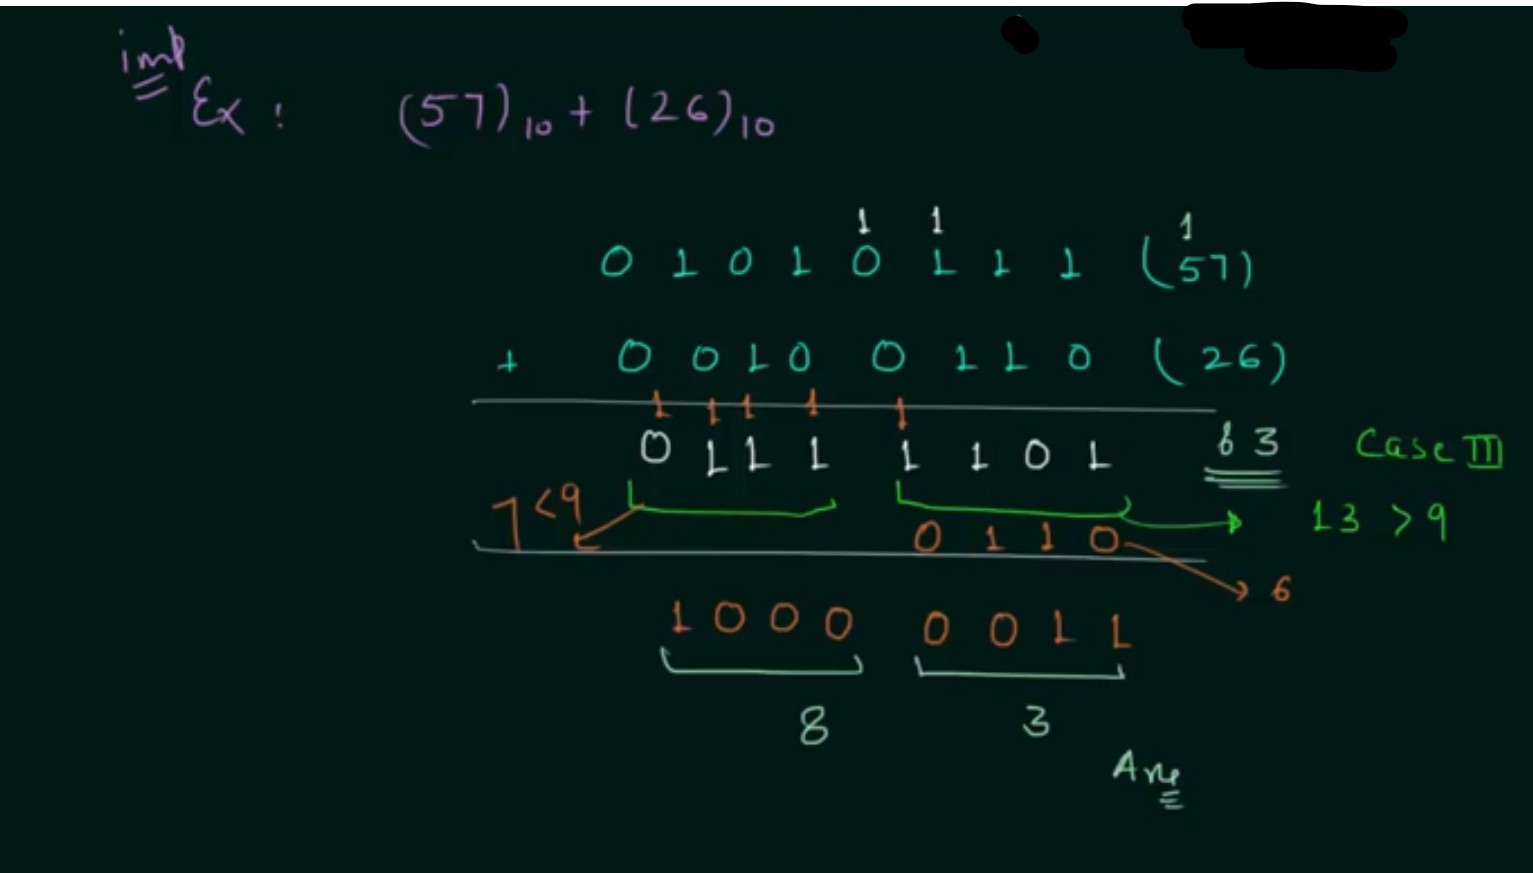 imp
Ex : (57)10 + (26)10
1 1 1
0 1 0 1 0 1 1 1 (57)
+ 0 0 1 0 0 1 1 0 (26)
1 1 1 1 1
0 1 1 1 1 1 0 1 83 Case III
7 < 9 13 > 9
0 1 1 0
6
1 0 0 0 0 0 1 1
8 3
Ans